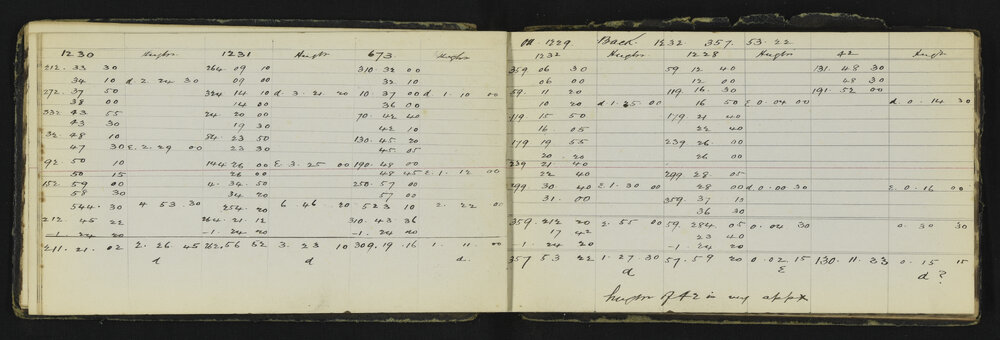 1230 Heights 1231 Height 673 Heights
212. 33 30 264 09 10 310 32 00
34 10 d. 2. 24 30 09 00 32 10
272. 37 50 324 14 10 d. 3. 21. 20 10. 37 00 d 1. 10 00
38 00 14 00 36 00
332 43 55 24. 20 00 70. 42 40
43 30 19 30 42 10
32. 48 10 84. 23 50 130. 45. 20
47 30 E. 2. 29 00 23 30 45. 05
92. 50 10 144 26 00 E. 3. 25 00 190. 48 00
50 15 26 00 48 45 E. 1. 12 00
152. 59 00 4. 34. 50 250. 57 00
58 30 34 20 57 00
544. 30 4 53. 30 254 20 6 46. 20 523 10 2. 22 00
212. 45 22 264. 21. 12 310. 43. 36
-1. 24 20 -1. 24 20 -1. 24 20
211. 21. 02 2. 26 45 262. 56 52 3. 23 10 309. 19. 16 1. 11. 00
d d d.
On 1229. Back 1232 357. 53. 22
1232 Heights 1228 Heights 42 Heigh
359 06 30 59 12 40 131. 48 30
06 00 12 00 48 30
59. 11 20 119 16. 30 191. 52 00
10 20 d 1. 25. 00 16 50 E 0. 04 00 d. 0. 14 30
119 15 50 179 21 40
16. 05 22 40
179 19 55 239 26. 00
20. 20 26 00
239 21. 40
22 40 299 28. 05
299 30 40 E. 1. 30 00 28 00 d. 0. 00 30 E. 0. 16 00
31. 00 359. 37 10
36 30
359. 212 20 2. 55 00 59. 284. 05 0. 04 30 0. 30 30
17 42 23 40
-1. 24 20 -1. 24 20
357 53 22 1. 27. 30 57. 59 20 0. 02. 15 130. 11. 33 0. 15 15
d E d ?
height of 42 is very appx